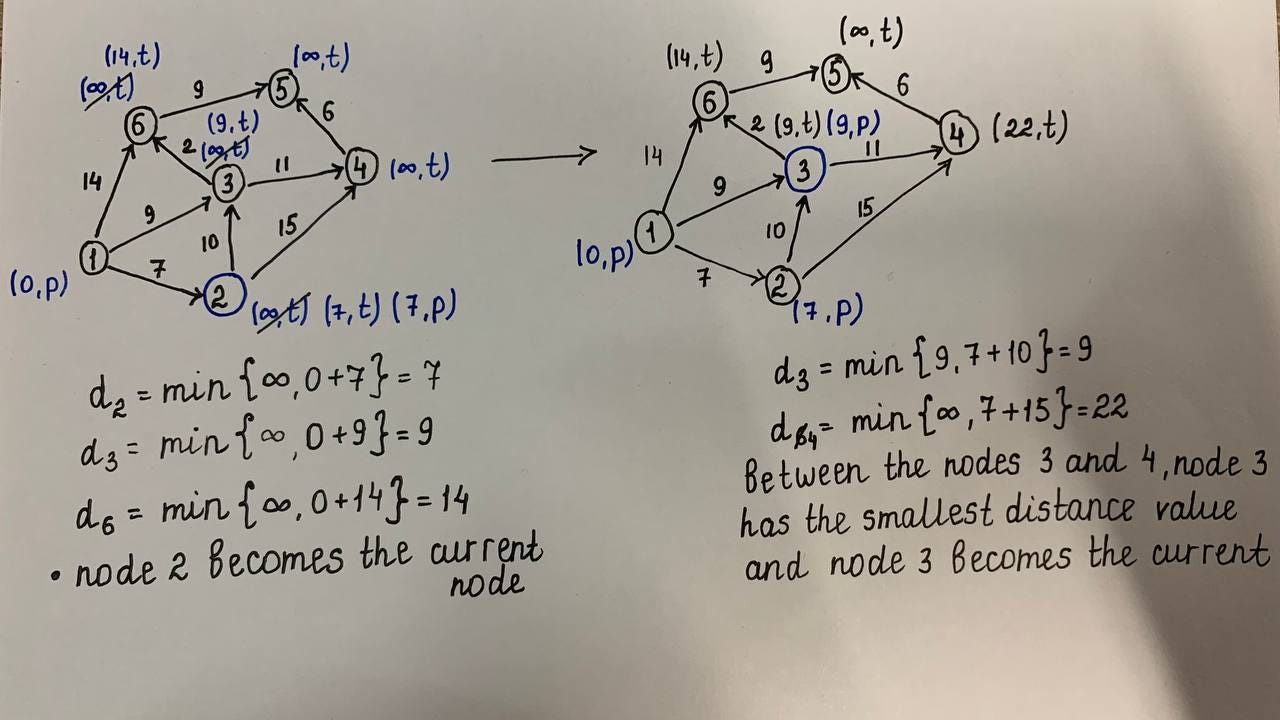 (14,t)
(∞,t)
(∞,t)
9
5
6
(9,t)
6
2
(∞,t)
14
3
11
4
(∞,t)
9
10
15
1
7
(0,p)
2
(∞,t) (7,t) (7,p)
d₂ = min{∞, 0+7} = 7
d₃ = min{∞, 0+9} = 9
d₆ = min{∞, 0+14} = 14
• node 2 becomes the current
node
(∞,t)
(14,t)
9
5
6
6
2 (9,t) (9,p)
4
(22,t)
14
3
11
9
15
1
10
(0,p)
7
2
(7,p)
d₃ = min{9, 7+10} = 9
d₄ = min{∞, 7+15} = 22
Between the nodes 3 and 4, node 3
has the smallest distance value
and node 3 becomes the current